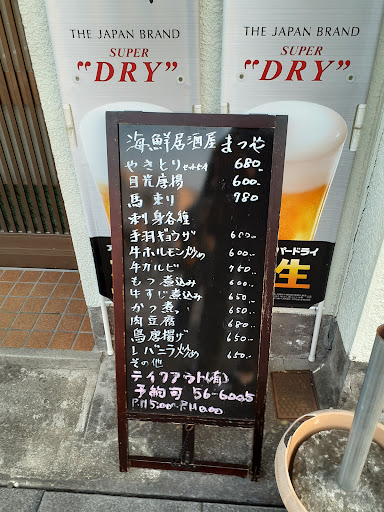 THE JAPAN BRAND
SUPER
"DRY"
THE JAPAN BRAND
SUPER
"DRY"
海鮮居酒屋 まつや
やきとり 680
目光唐揚 600-
馬刺り 980
刺身各種
手羽ギョウザ 600-
牛ホルモン炒め 600-
牛カルビ 750-
もつ煮込み 600-
牛すじ煮込み 650-
かつ煮 650-
肉豆腐 680-
鳥唐揚げ 650-
レバニラ炒め 650-
その他
テイクアウト(有)
予約可 56-6005
P.M5:00~P.M
パードライ
生